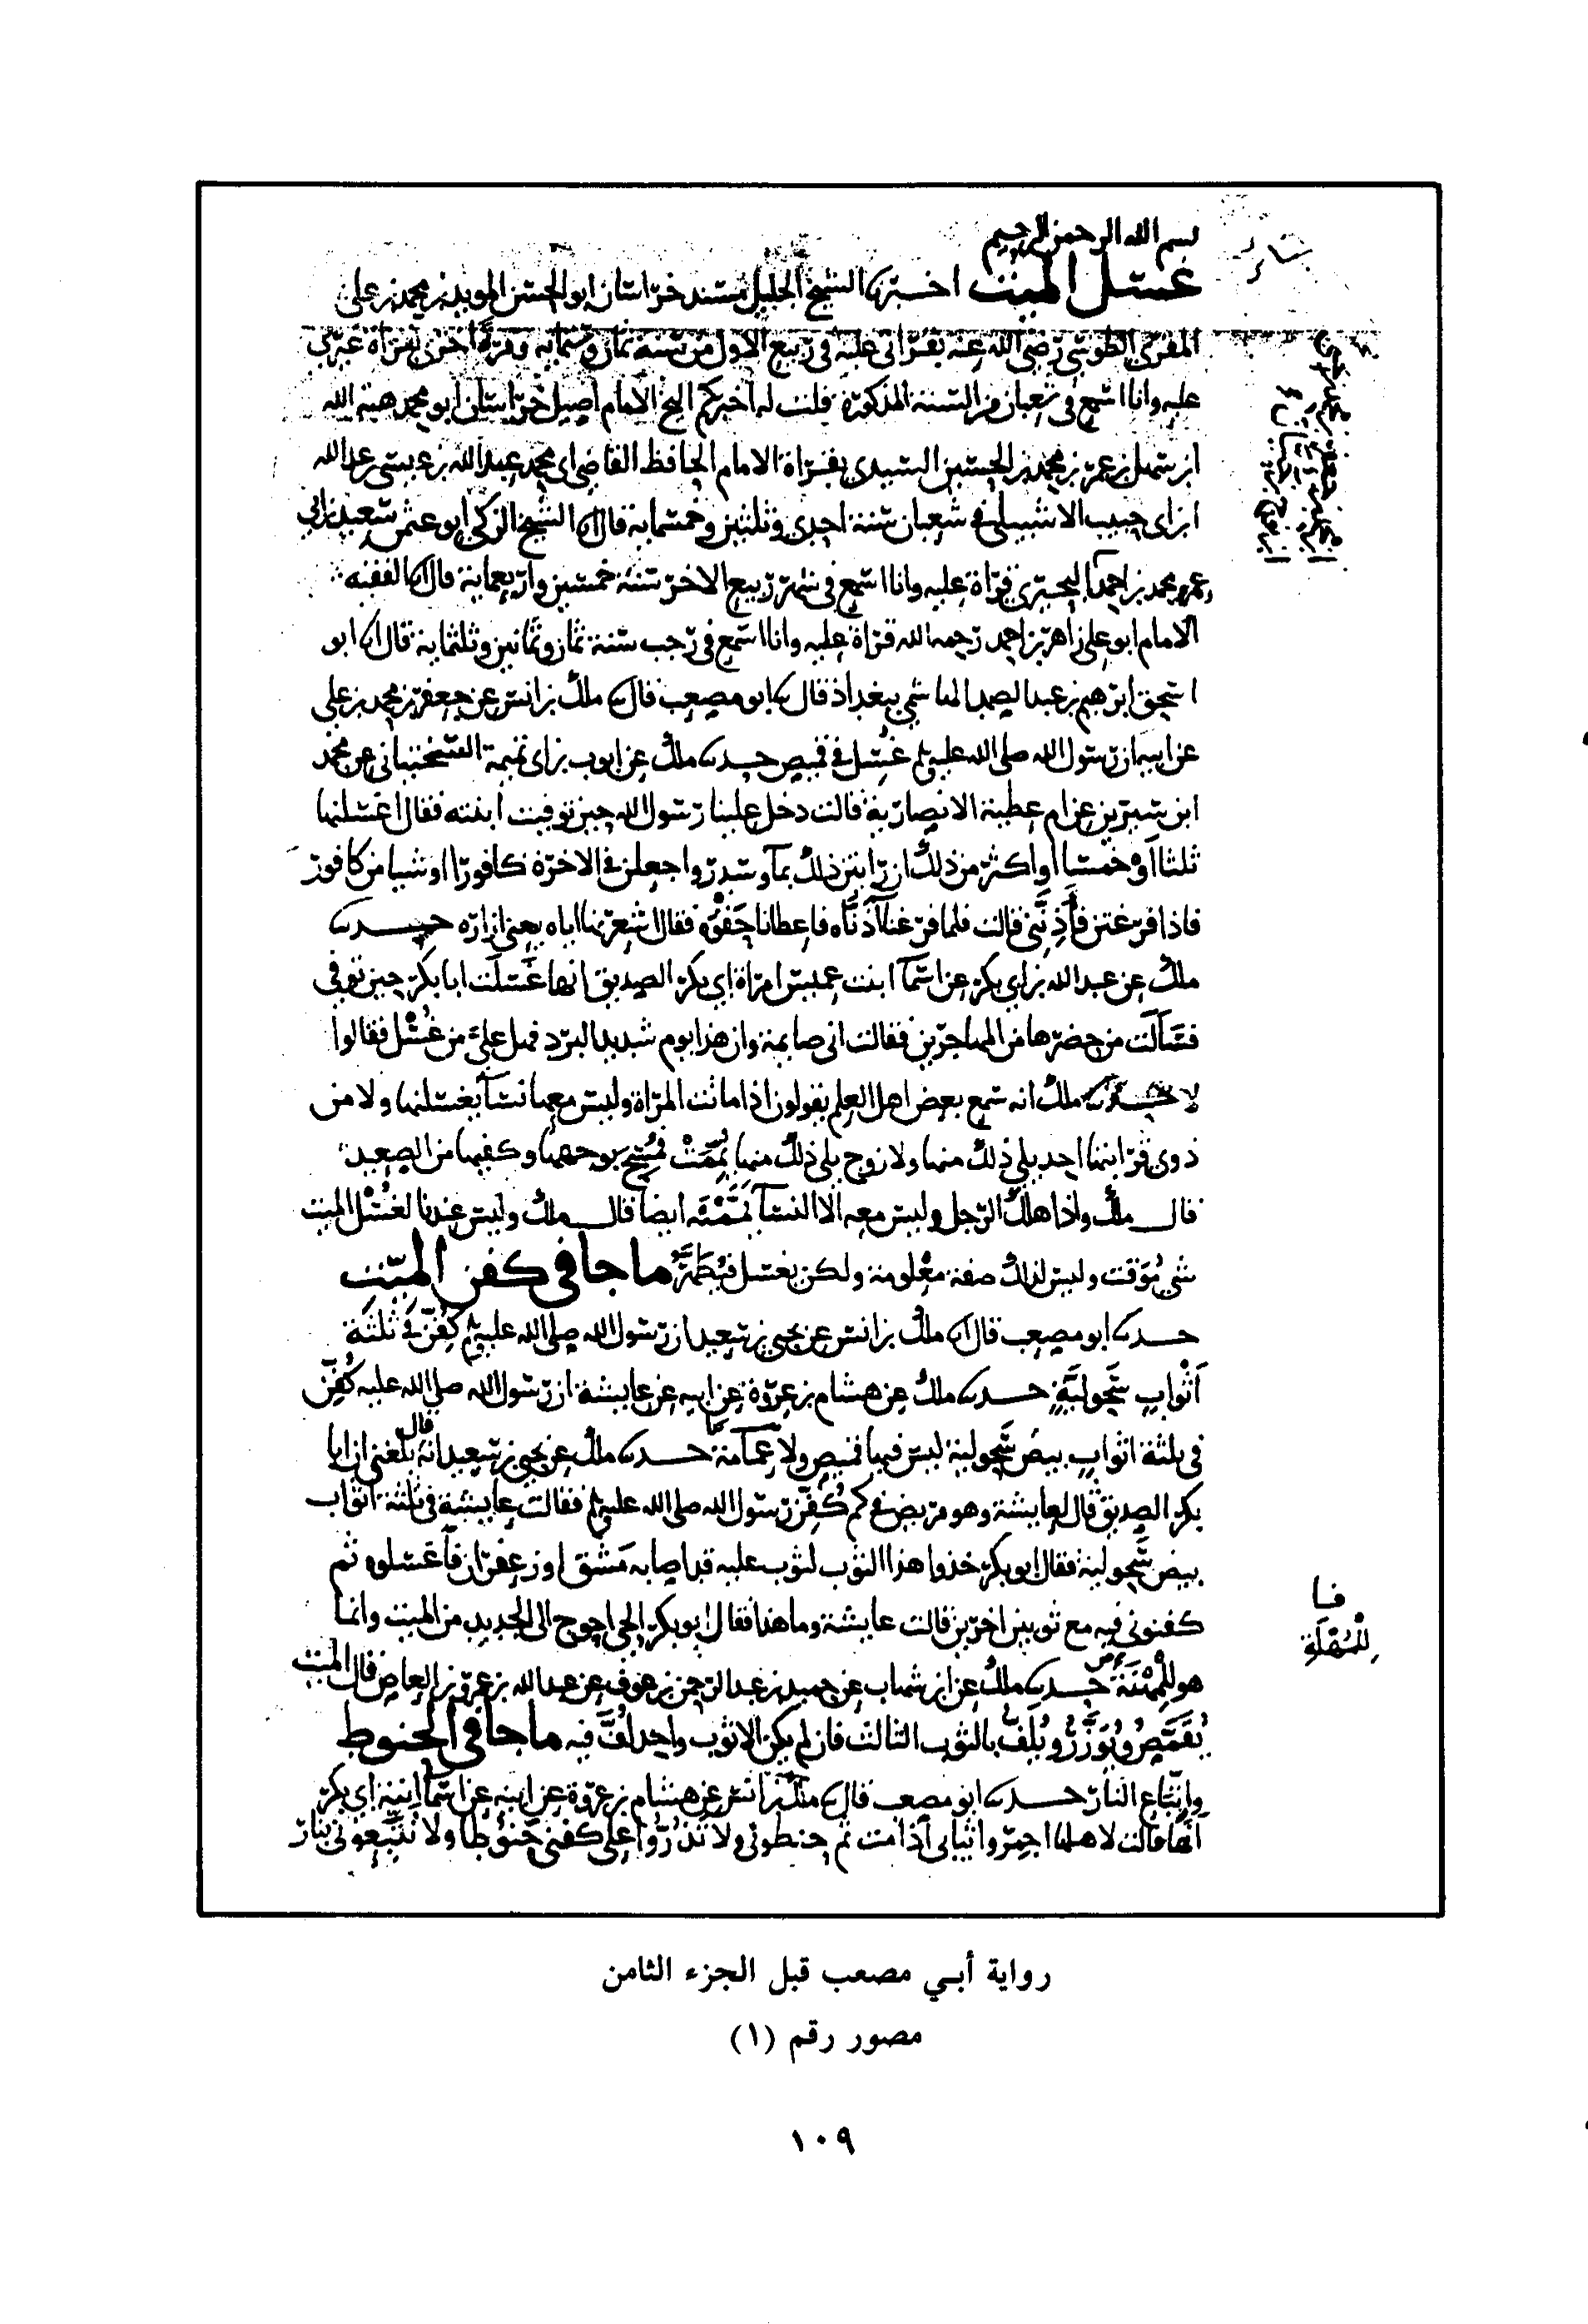 بسم الله الرحمن الرحيم
غسل الميت اخبرنا الشيخ الجليل مسند خراسان ابو الحسن المويد بن محمد بن علي
المقرئ الطوسي رضي الله عنه بقراتي عليه في ربيع الاول من سنة ثمان وستمايه ومرة اخرى بقراة غيري
عليه وانا اسمع في شعبان من السنة المذكورة قلت له اخبركم الشيخ الامام اصيل خراسان ابو محمد هبة الله
ابن سهل بن عمر بن محمد بن الحسين السيدي بقراة الامام الحافظ القاضي ابي محمد عبد الله بن عيسى بن عبد الله
ابن ابي حبيب الاشبيلي في شعبان سنة احدى وثلثين وخمسماية قال انا الشيخ الزكي ابو عثمن سعيد بن ابي
عمرو محمد بن احمد البحيري قراة عليه وانا اسمع في شهر ربيع الاخر سنة خمسين واربعماية قال انا الفقيه
الامام ابو علي زاهر بن احمد رحمه الله قراة عليه وانا اسمع في رجب سنة ثمان وثمانين وثلثماية قال انا ابو
اسحق ابرهيم بن عبد الصمد الهاشمي ببغداذ قال نا ابو مصعب قال نا ملك بن انس عن جعفر بن محمد بن علي
عن ابيه ان رسول الله صلى الله عليه وسلم غسل في قميص حدثنا ملك عن ايوب بن ابي تميمة السختياني عن محمد
ابن سيرين عن ام عطية الانصارية قالت دخل علينا رسول الله حين توفيت ابنته فقال اغسلنها
ثلثا او خمسا او اكثر من ذلك ان رايتن ذلك بمآ وسدر واجعلن في الاخرة كافورا او شيا من كافور
فاذا فرغتن فآذنني قالت فلما فرغنا آذناه فاعطانا حقوه فقال اشعرنها اياه يعني ازاره حدثنا
ملك عن عبد الله بن ابي بكر عن اسمآ ابنت عميس امراة ابي بكر الصديق انها غسلت ابا بكر حين توفي
فسالت من حضرها من المهاجرين فقالت اني صايمة وان هذا يوم شديد البرد فهل علي من غسل فقالوا
لا حدثنا ملك انه سمع بعض اهل العلم يقولون اذا ماتت المراة وليس معها نسآ يغسلنها ولا من
ذوي قرابتها احد يلي ذلك منها ولا زوج يلي ذلك منها يممت فمسح بوجهها وكفيها من الصعيد
قال ملك واذا هلك الرجل وليس معه الا النسآ يممنه ايضا قال ملك وليس عندنا لغسل الميت
شي موقت وليس لذلك صفة معلومة ولكن يغسل فيطهر ما جا في كفن الميت
حدثنا ابو مصعب قال نا ملك بن انس عن يحيى بن سعيد ان رسول الله صلى الله عليه وسلم كفن في ثلثة
اثواب سحولية حدثنا ملك عن هشام بن عروة عن ابيه عن عايشة ان رسول الله صلى الله عليه كفن
في ثلثة اثواب بيض سحولية ليس فيها قميص ولا عمامة حدثنا ملك عن يحيى بن سعيد انه قال بلغني ان ابا
بكر الصديق قال لعايشة وهو مريض في كم كفن رسول الله صلى الله عليه وسلم فقالت عايشة في ثلثة اثواب
بيض سحولية فقال ابو بكر خذوا هذا الثوب لثوب عليه قد اصابه مشق او زعفران فاغسلوه ثم
كفنوني فيه مع ثوبين اخرين قالت عايشة وما هذا فقال ابو بكر الحي احوج الى الجديد من الميت وانما
هو للمهنة حدثنا ملك عن ابن شهاب عن حميد بن عبد الرحمن بن عوف عن عبد الله بن عمرو بن العاص قال الميت
يقمص ويوزر ويلف بالثوب الثالث فان لم يكن الا ثوب واحد لف فيه ما جا في الحنوط
واتباع النار حدثنا ابو مصعب قال نا ملك بن انس عن هشام بن عروة عن ابيه عن اسمآ ابنة ابي بكر
انها قالت لاهلها اجمروا ثيابي اذا مت ثم حنطوني ولا تذروا على كفني حنوطا ولا تتبعوني بنار
فا
للمهلة
رواية أبي مصعب قبل الجزء الثامن
مصور رقم (١)
١٠٩